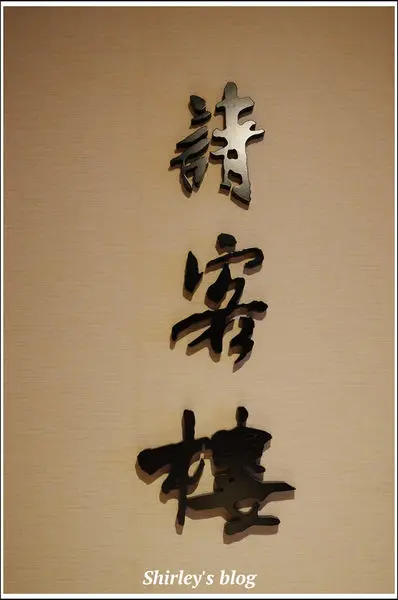 請客樓
Shirley's blog